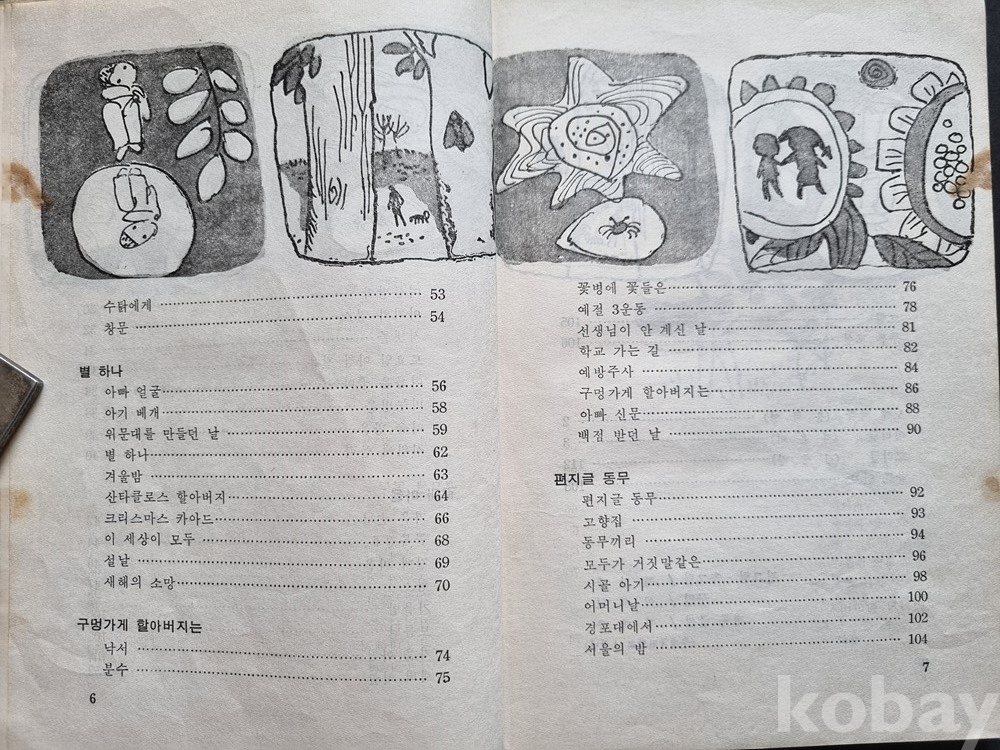 수탉에게 ································ 53
창문 ································ 54
별 하나
아빠 얼굴 ································ 56
아기 베개 ································ 58
위문대를 만들던 날 ································ 59
별 하나 ································ 62
겨울밤 ································ 63
산타클로스 할아버지 ································ 64
크리스마스 카아드 ································ 66
이 세상이 모두 ································ 68
설날 ································ 69
새해의 소망 ································ 70
구멍가게 할아버지는
낙서 ································ 74
분수 ································ 75
6
꽃병에 꽃들은 ································ 76
예절 3운동 ································ 78
선생님이 안 계신 날 ································ 81
학교 가는 길 ································ 82
예방주사 ································ 84
구멍가게 할아버지는 ································ 86
아빠 신문 ································ 88
백점 받던 날 ································ 90
편지글 동무
편지글 동무 ································ 92
고향집 ································ 93
동무끼리 ································ 94
모두가 거짓말같은 ································ 96
시골 아기 ································ 98
어머니날 ································ 100
경포대에서 ································ 102
서울의 밤 ································ 104
7
kobay